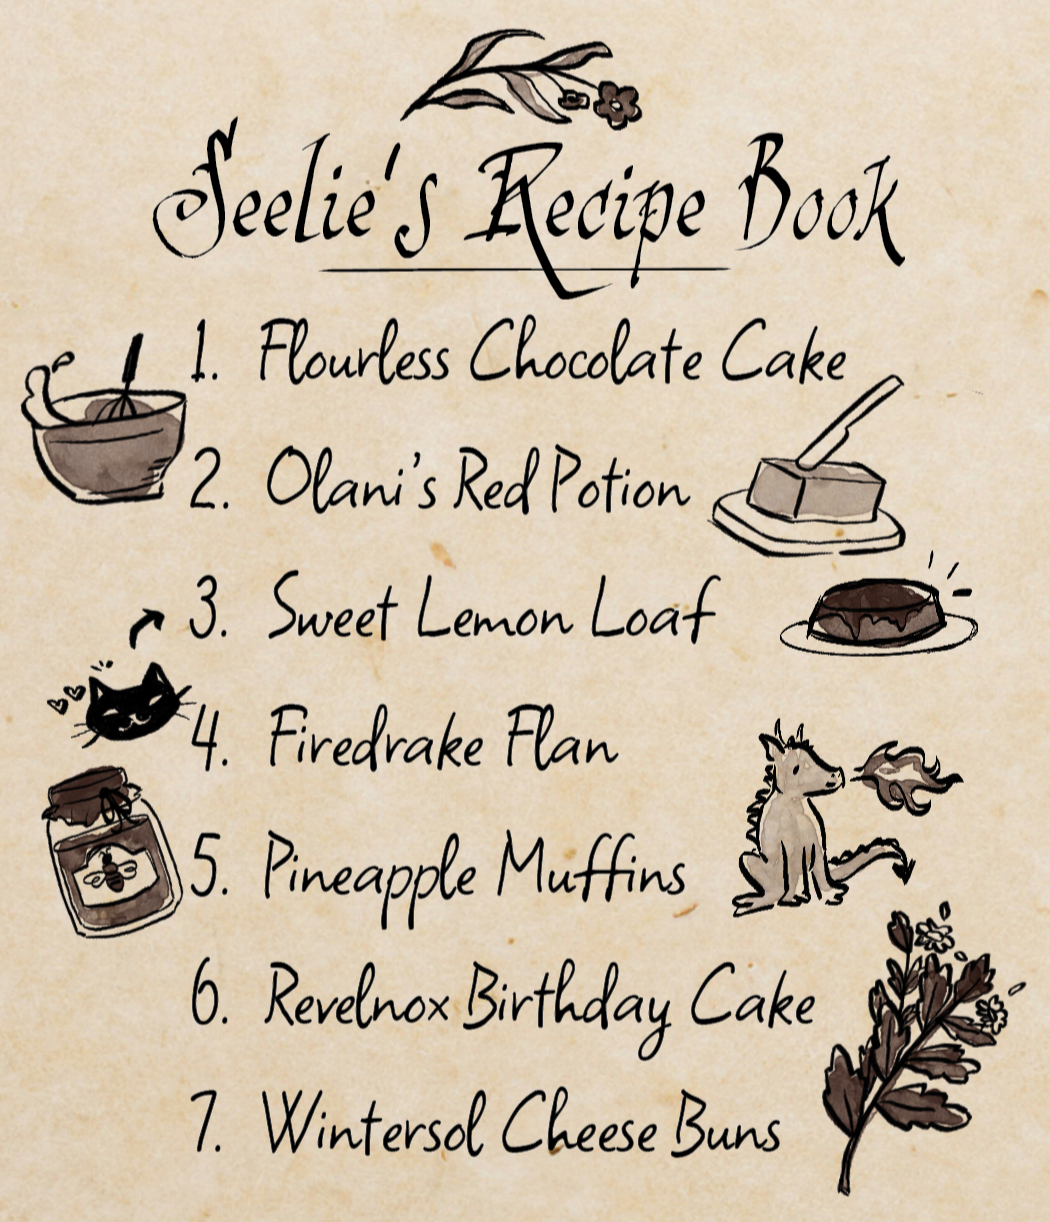 Seelie's Recipe Book
1. Flourless Chocolate Cake
2. Olani's Red Potion
3. Sweet Lemon Loaf
4. Firedrake Flan
5. Pineapple Muffins
6. Revelnox Birthday Cake
7. Wintersol Cheese Buns